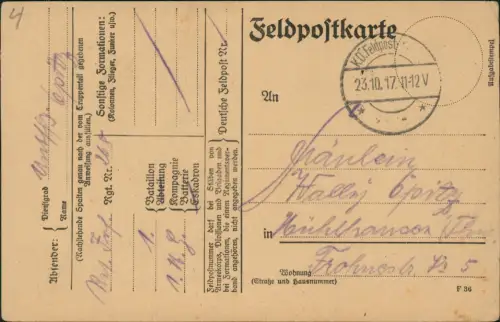 4
Feldpostkarte
K.D. Feldpost
23.10.17. 11-12 V
Aufgabestempel
An
Fräulein
Wally Opitz
in Mühlhausen
Wohnung
(Straße und Hausnummer)
Frohnastr. 5
F 36
Absender:
Dienstgrad
Name Opitz
(Nachstehende Spalten genau nach der vom Truppenteil gegebenen
Anweisung ausfüllen.)
Rgt. Nr.
Sonstige Formationen:
(Kolonnen, Flieger, Funker usw.)
1. Bataillon
Abteilung
1. Kompagnie
Batterie
Eskadron
Deutsche Feldpost Nr.
Feldpostnummer darf bei Stäben von
Armeekorps, Divisionen und Brigaden und
bei Formationen, die einem Regimentsver-
band angehören, nicht angegeben werden.